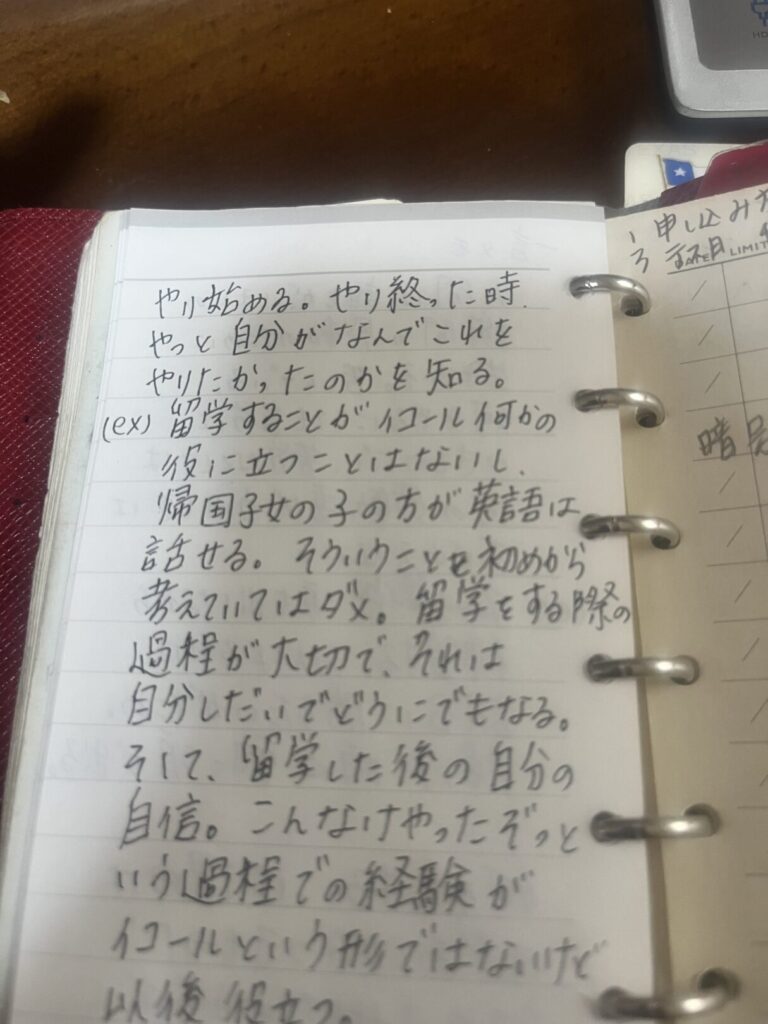 やり始める。やり終った時、
やっと自分がなんでこれを
やりたかったのかを知る。
(ex) 留学することがイコール何かの
役に立つことはないし、
帰国子女の子の方が英語は
話せる。そういうことを初めから
考えていてはダメ。留学をする際の
過程が大切で、それは
自分しだいでどうにでもなる。
そして、留学した後の自分の
自信。こんなけやったぞっと
いう過程での経験が
イコールという形ではないけど
以後役立つ。
申し込み
DATE LIMIT
暗